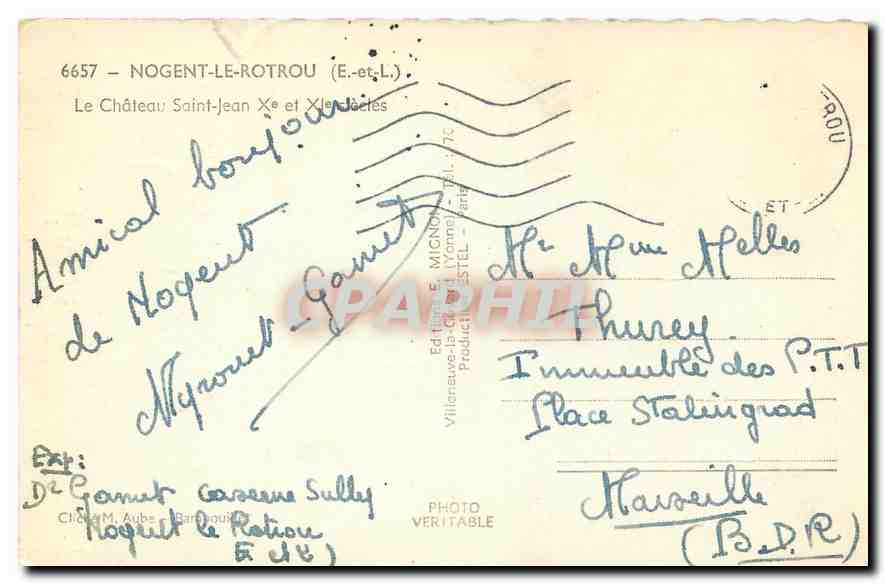 6657 - NOGENT-LE-ROTROU (E.-et-L.)
Le Château Saint-Jean Xe et XIe siècles
Amical bonjour
de Nogent
-Gamet
Exp:
Dr Gamet caserne Sully
Nogent le Rotrou
E et L)
Cliché M. Aube
PHOTO
VERITABLE
Editions E. MIGNON
Villeneuve-la-G (Yonne) - Tél. : 70
ESTEL - Paris
ROU
ET
Mr Mme Melles
Thurey
Immeuble des P.T.T
Place Stalingrad
Marseille
(B.D.R)
CPAPHIL